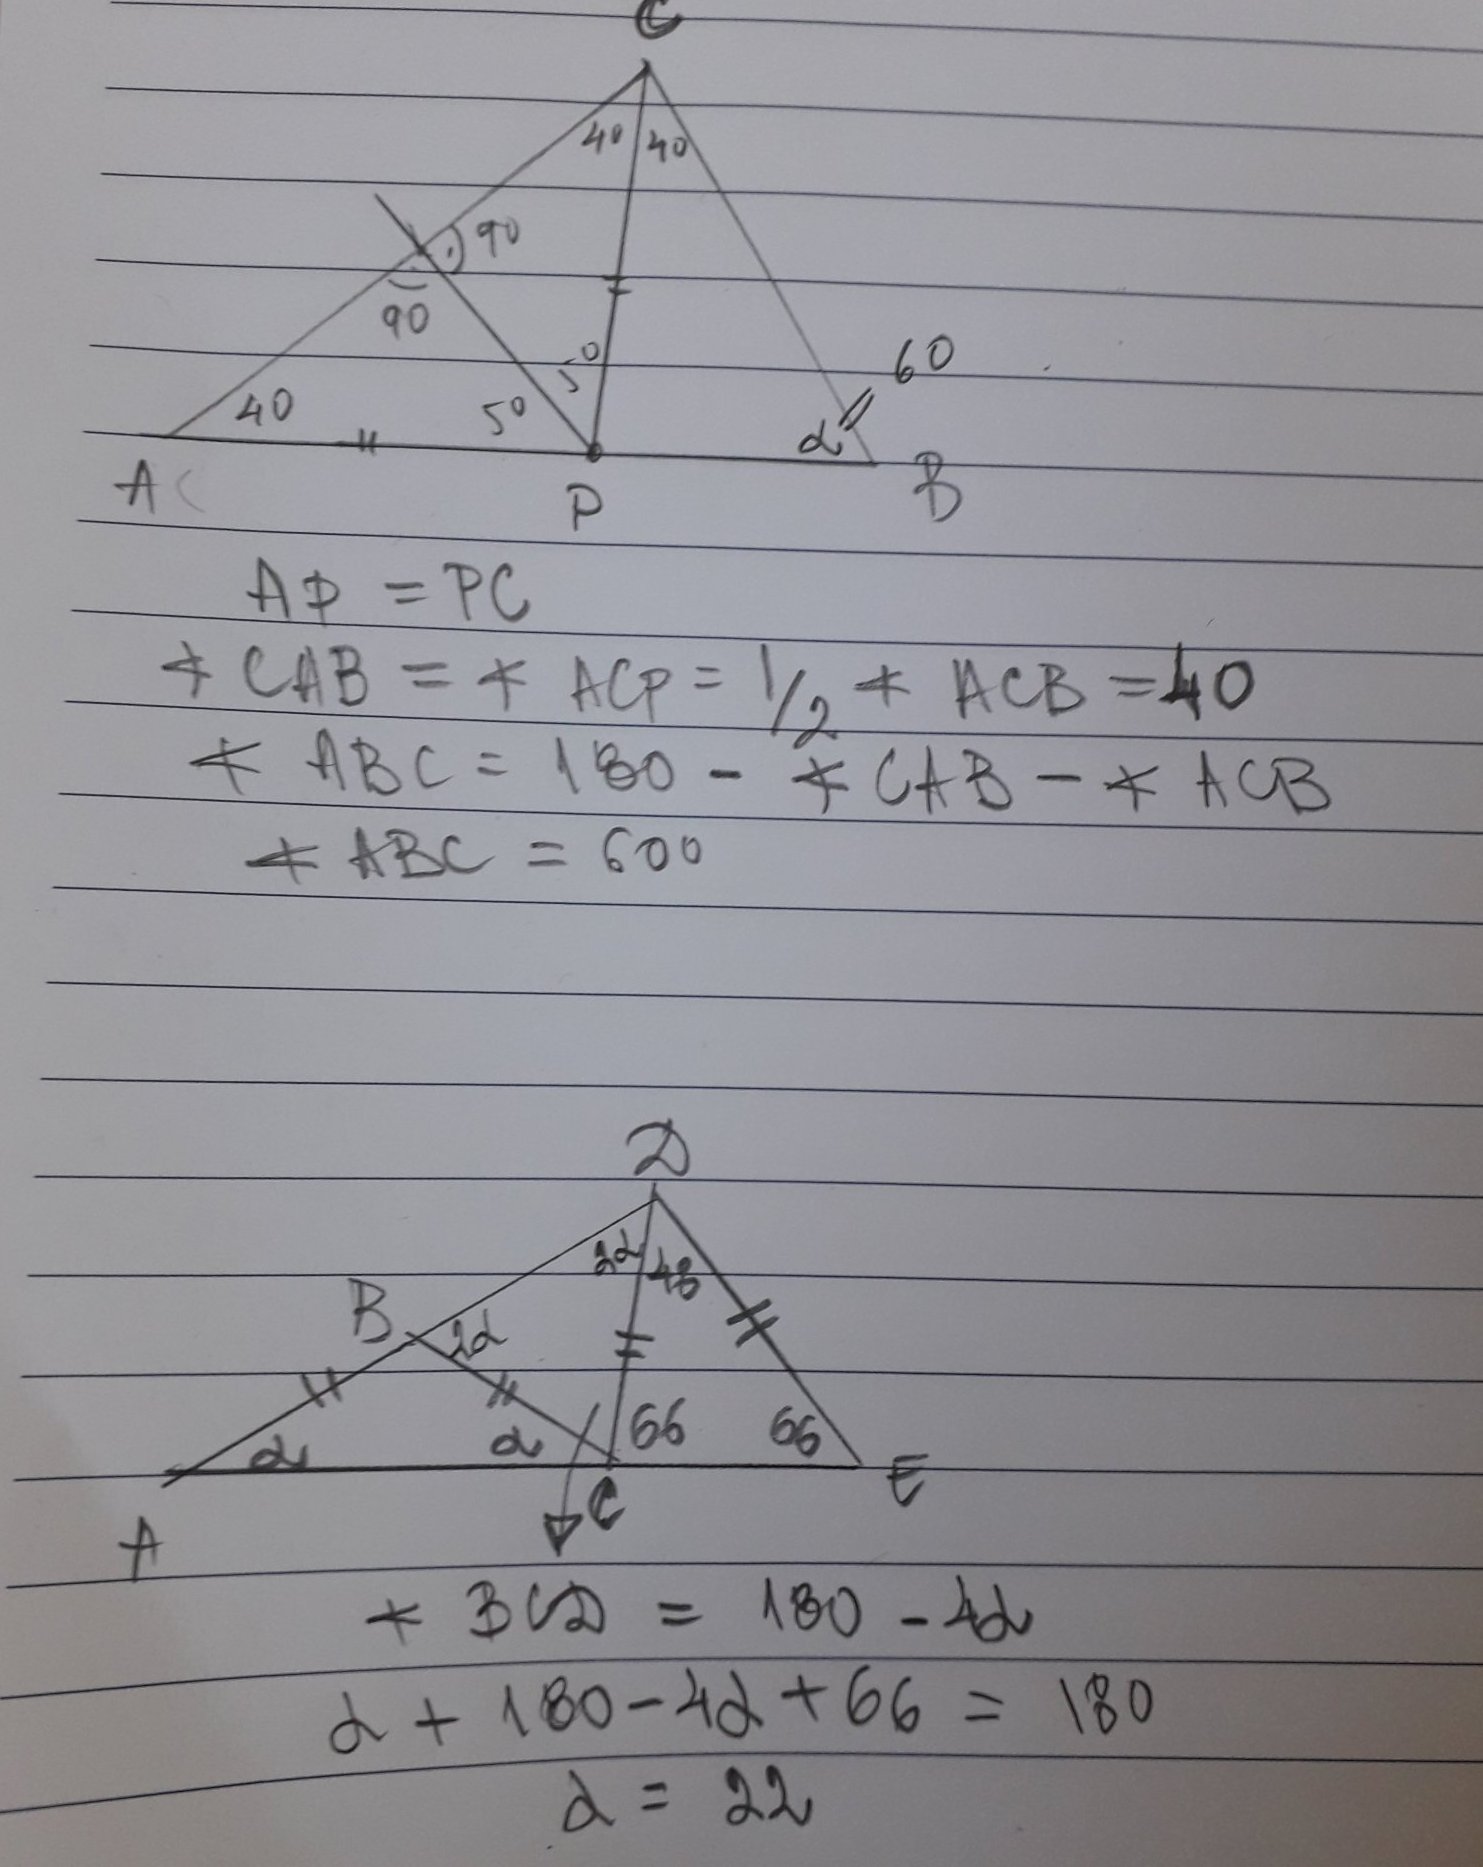 C
40 40
90
90
50
60
40
50
α
A
P
B
AP = PC
∢ CAB = ∢ ACP = 1/2 ∢ ACB = 40
∢ ABC = 180 - ∢ CAB - ∢ ACB
∢ ABC = 600
D
2α 48
B
2α
α
α
66
66
A
C
E
∢ BCD = 180 - 4α
α + 180 - 4α + 66 = 180
α = 22